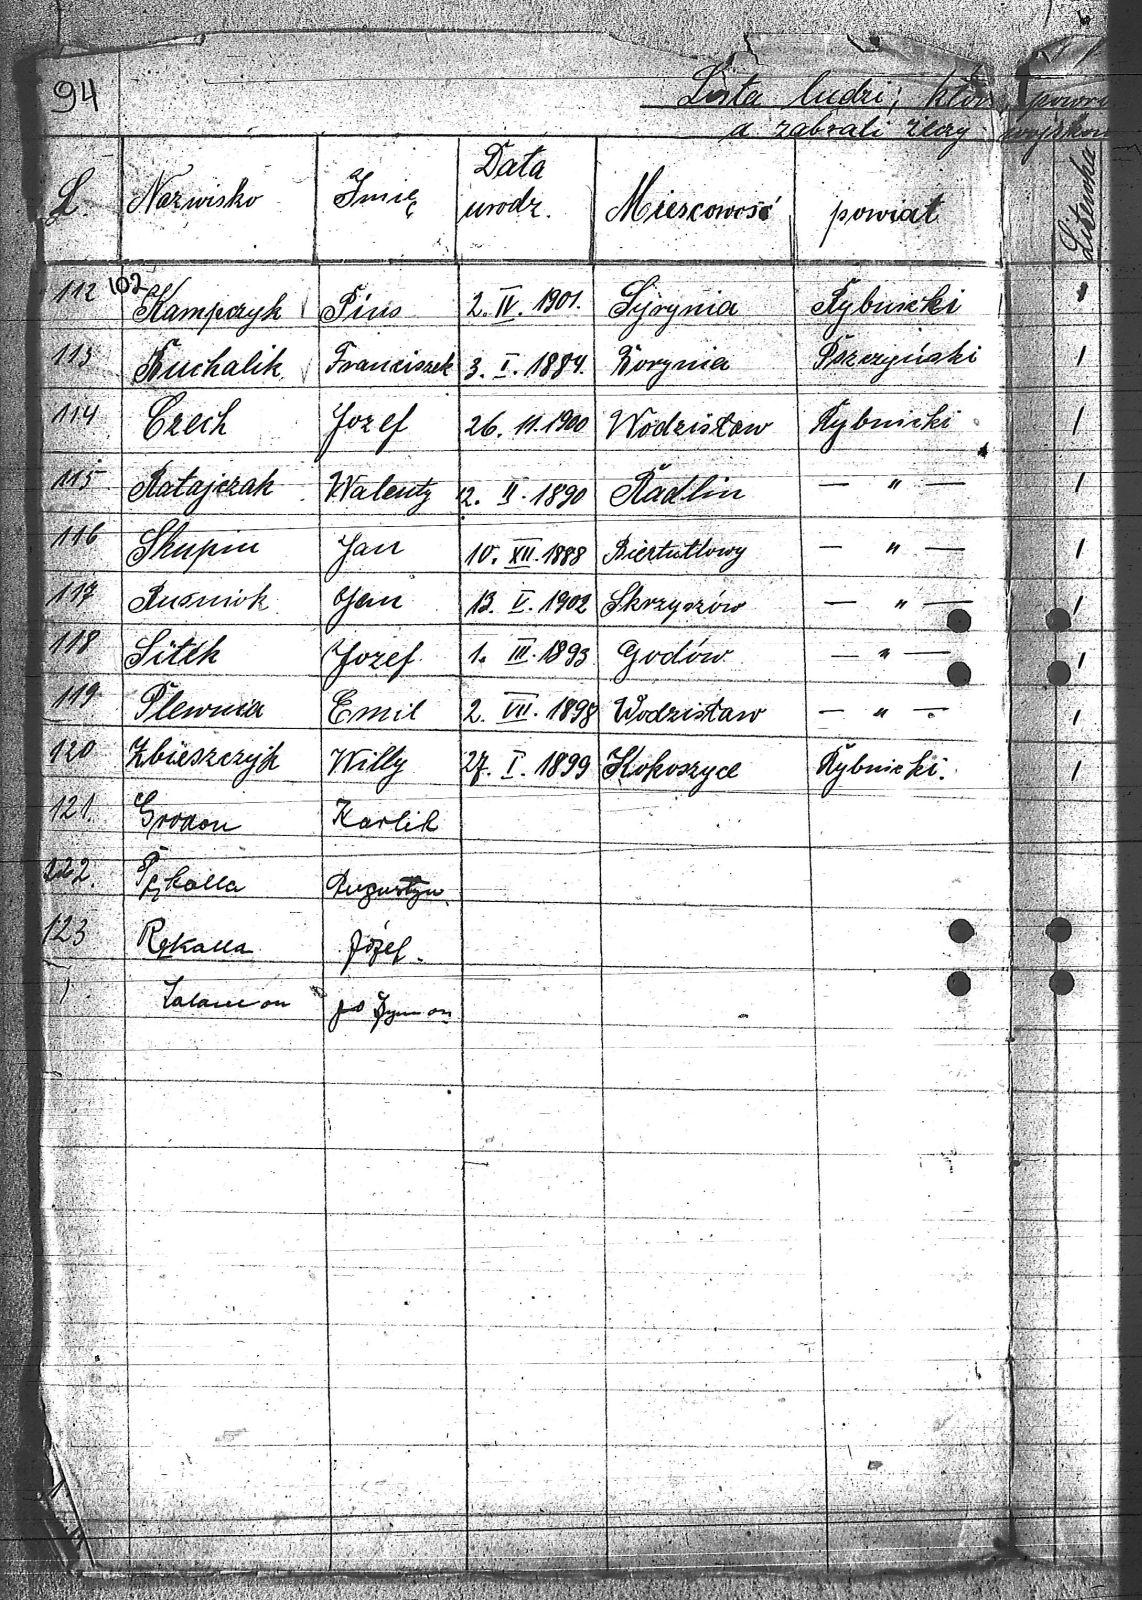 94
Lista ludzi; którz powró
a zabrali rzeczy wojskow
L. Nazwisko Imię Data urodz. Miescowość powiat Litewka
112 102 Kampczyk Pius 2. IV. 1901. Syrynia Rybnicki 1
113 Kuchalik Franciszek 3. I. 1884. Borynia Pszczyński 1
114 Czech Jozef 26. 11. 1900 Wodzisław Rybnicki 1
115 Ratajczak Walenty 2. II. 1890 Radlin — " — 1
116 Skupin Jan 10. XII. 1888 Biertułtowy — " — 1
117 Rusniok Jan 13. V. 1902 Skrzyszów — " — 1
118 Sitek Jozef 1. III. 1893 Godów — " — 1
119 Plewnia Emil 2. VII. 1898 Wodzisław — " — 1
120 Zbieszczyk Willy 27. I. 1899 Kokoszyce Rybnicki. 1
121. Grodon Karlik
122. Pękalla Augustyn
123 Rękalla Józef.
Salamon Szymon